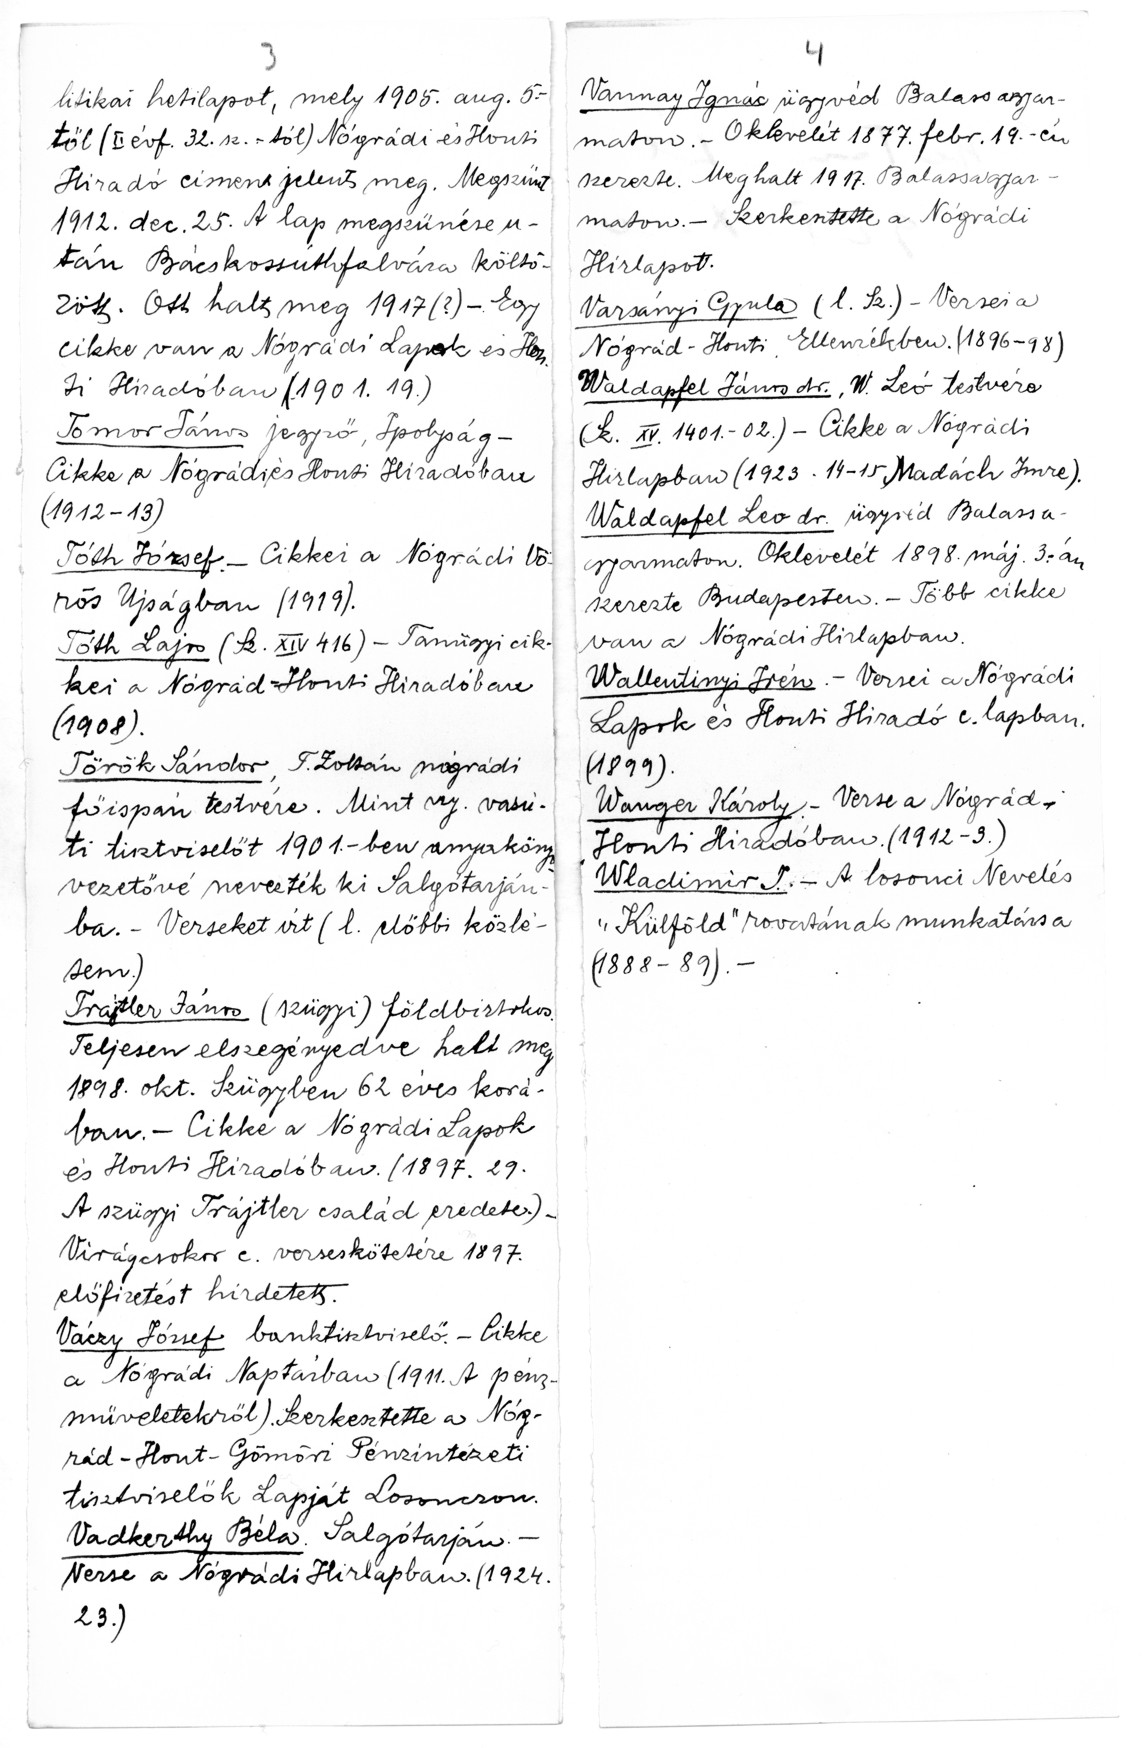 3
litikai hetilapot, mely 1905. aug. 5.-
től (II évf. 32. sz.-tól) Nógrádi és Honti
Hiradó cimen jelent meg. Megszünt
1912. dec. 25. A lap megszünése u-
tán Bácskossuthfalvára költö-
zött. Ott halt meg 1917 (?) – Egy
cikke van a Nógrádi Lapok és Hon-
ti Hiradóban (1901. 19.)
Tomor János jegyző, Ipolyság –
Cikke a Nógrádi és Honti Hiradóban
(1912–13)
Tóth József. – Cikkei a Nógrádi Vö-
rös Ujságban (1919).
Tóth Lajos (Sz. XIV 416) – Tanügyi cik-
kei a Nógrád-Honti Hiradóban
(1908).
Török Sándor, T. Zoltán nógrádi
főispán testvére. Mint vasu-
ti tisztviselőt 1901.-ben anyakönyv-
vezetővé nevezték ki Salgótarján-
ba. – Verseket irt (l. előbbi közlé-
sem.)
Trajtler János (szügyi) földbirtokos.
Teljesen elszegényedve halt meg
1898. okt. Szügyben 62 éves korá-
ban. – Cikke a Nógrádi Lapok
és Honti Hiradóban. (1897. 29.
A szügyi Trájtler család eredete.) –
Virágcsokor c. verseskötetére 1897.
előfizetést hirdetett.
Váczy József banktisztviselő. – Cikke
a Nógrádi Naptárban (1911. A pénz-
müveletekről). Szerkesztette a Nóg-
rád-Hont-Gömöri Pénzintézeti
tisztviselők Lapját Losonczon.
Vadkerthy Béla. Salgótarján. –
Verse a Nógrádi Hirlapban. (1924.
23.)
4
Vannay Ignác ügyvéd Balassagyar-
maton. – Oklevelét 1877. febr. 19.-én
szerezte. Meghalt 1917. Balassagyar-
maton. – Szerkentette a Nógrádi
Hirlapot.
Varsányi Gyula (l. Sz.) – Versei a
Nógrád-Honti Ellenzékben. (1896–98)
Waldapfel János dr., W. Leó testvére
(Sz. XIV. 1401.-02.) – Cikke a Nógrádi
Hirlapban (1923. 14-15 Madách Imre).
Waldapfel Leo dr. ügyvéd Balassa-
gyarmaton. Oklevelét 1898. máj. 3.-án
szerezte Budapesten. – Több cikke
van a Nógrádi Hirlapban.
Wallentinyi Irén. – Versei a Nógrádi
Lapok és Honti Hiradó c. lapban.
(1899).
Wanger Károly. – Verse a Nógrád-
Honti Hiradóban. (1912–3.)
Wladimir T. – A losonci Nevelés
„Külföld" rovatának munkatársa
(1888–89). –